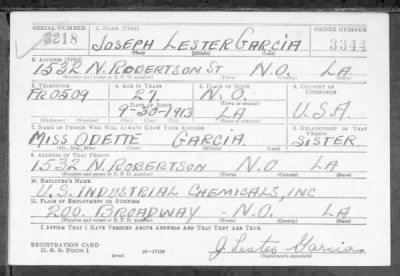 SERIAL NUMBER 1. NAME (Print) ORDER NUMBER
3218 JOSEPH LESTER GARCIA 3344
(First) (Middle) (Last)
2. ADDRESS (Print)
1532 N. ROBERTSON ST N.O. LA.
(Number and street or R. F. D. number) (Town) (County) (State)
3. TELEPHONE 4. AGE IN YEARS 5. PLACE OF BIRTH 6. COUNTRY OF CITIZENSHIP
FR0509 27 N.O.
DATE OF BIRTH (Town or county)
9-30-1913 LA U.S.A.
(Exchange) (Number) (Mo.) (Day) (Yr.) (State or country)
7. NAME OF PERSON WHO WILL ALWAYS KNOW YOUR ADDRESS 8. RELATIONSHIP OF THAT PERSON
MISS ODETTE GARCIA. SISTER
(Mr., Mrs., Miss) (First) (Middle) (Last)
9. ADDRESS OF THAT PERSON
1532 N. ROBERTSON N.O LA
(Number and street or R. F. D. number) (Town) (County) (State)
10. EMPLOYER'S NAME
U.S. INDUSTRIAL CHEMICALS, INC
11. PLACE OF EMPLOYMENT OR BUSINESS
200 BROADWAY N.O. LA
(Number and street or R. F. D. number) (Town) (County) (State)
I AFFIRM THAT I HAVE VERIFIED ABOVE ANSWERS AND THAT THEY ARE TRUE.
REGISTRATION CARD
D. S. S. Form 1 (over) 16—17105 J. Lester Garcia
(Registrant's signature)